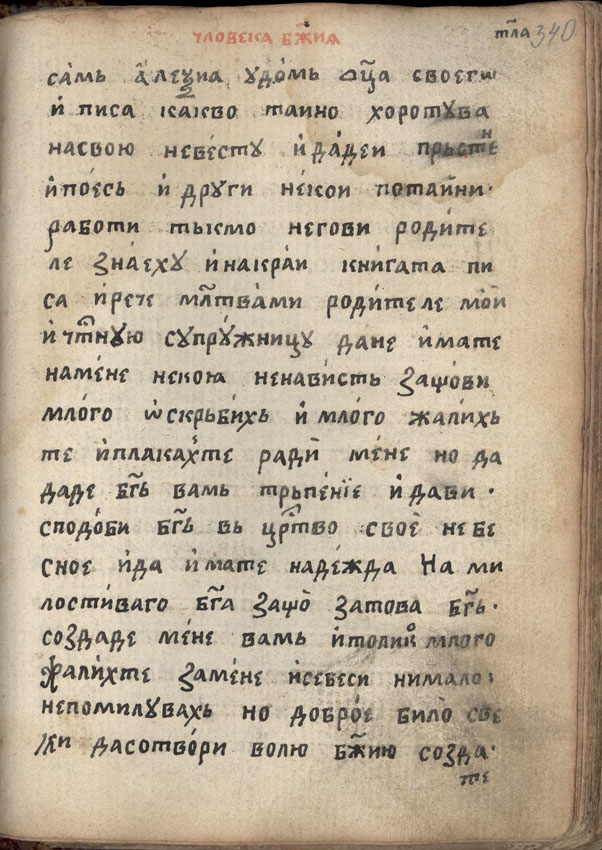 чловека бж҃їа
тм҃а 340
самь а҆леѯиа ꙋдомь ѡц҃а своегѡ
и҆ писа какво таино хоротꙋва
насвою невѣстꙋ и҆дадеи прьстен
и҆поесь и҆ дрꙋги некои потаини·
работи тькмо негови родите
ле знаехꙋ и҆накраи книгата пи
са и҆рече мл҃твами родителе мои
и҆ чт҃нꙋю сꙋпрꙋжницꙋ дане и҆мате
намене некоꙗ ненависть защови
много ѡ҆скрьбихь и҆ много жалихь
те и҆плакахте ради мене но да
даде бг҃ь вамь трьпенїе и҆ дави·
сподоби бг҃ь вь цр҃тво свое небе
сное и҆да и҆мате надежда на ми
лостиваго бг҃а защо затова бг҃ь·
создаде мене вамь и҆толико много
жалихте замене и҆себеси нимало·
непомилꙋвахь но доброе било све
жи дасотвори волю бж҃ию созда·
те